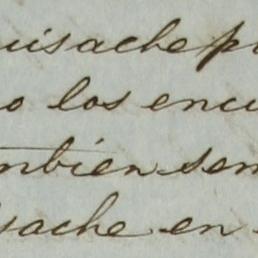 uisache p
o los encu
mbien sem
sache en